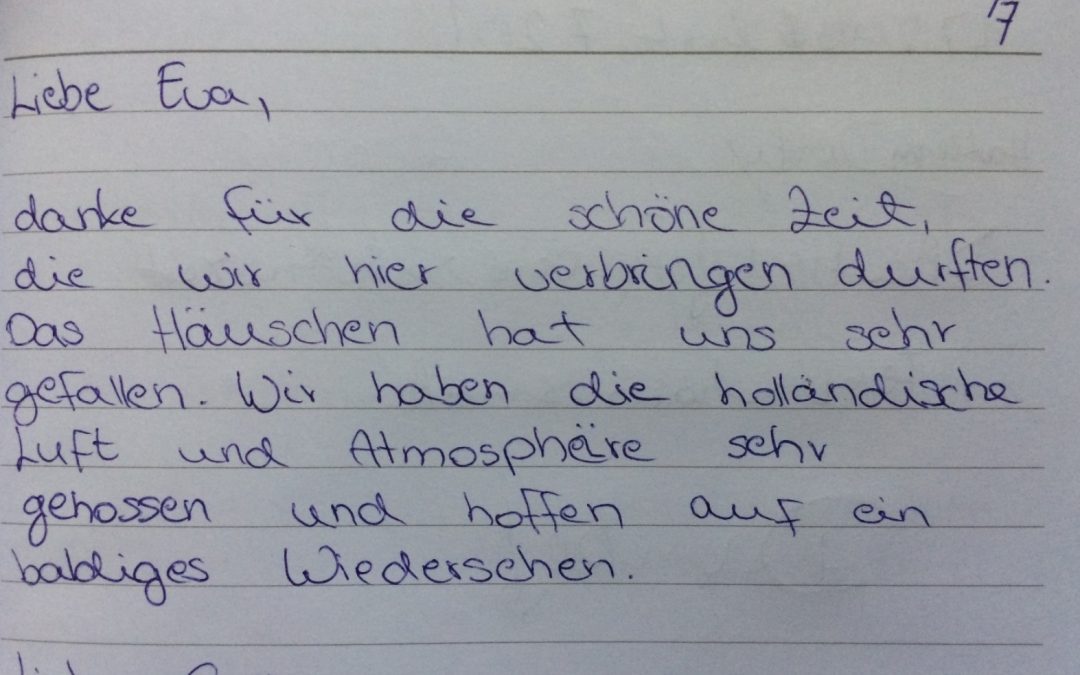 17
Liebe Eva,
danke für die schöne Zeit,
die wir hier verbringen durften.
Das Häuschen hat uns sehr
gefallen. Wir haben die holländische
Luft und Atmosphäre sehr
genossen und hoffen auf ein
baldiges Wiedersehen.